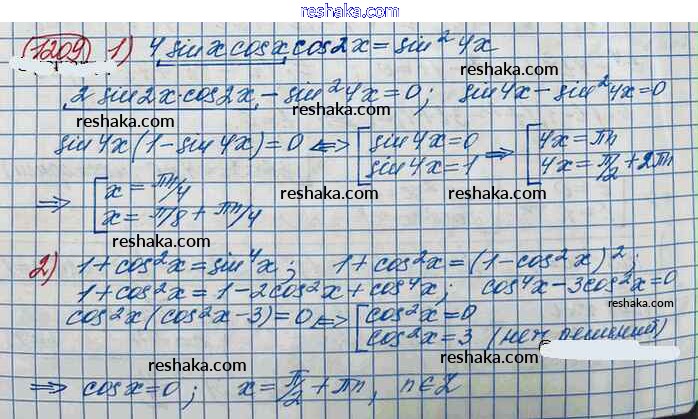 reshaka.com
1209 1) 4 sin x cos x cos 2x = sin² 4x
reshaka.com
2 sin 2x · cos 2x - sin² 4x = 0; sin 4x - sin² 4x = 0
reshaka.com reshaka.com
sin 4x (1 - sin 4x) = 0 <=> [ sin 4x = 0 => [ 4x = πn
sin 4x = 1 4x = π/2 + 2πn
=> [ x = πn/4
x = π/8 + πn/4
reshaka.com reshaka.com
2) 1 + cos² x = sin⁴ x; 1 + cos² x = (1 - cos² x)²;
reshaka.com
1 + cos² x = 1 - 2cos² x + cos⁴ x; cos⁴ x - 3cos² x = 0
reshaka.com
cos² x (cos² x - 3) = 0 <=> [ cos² x = 0
cos² x = 3 (нет решений)
reshaka.com reshaka.com
=> cos x = 0; x = π/2 + πn, n ∈ Z
reshaka.com